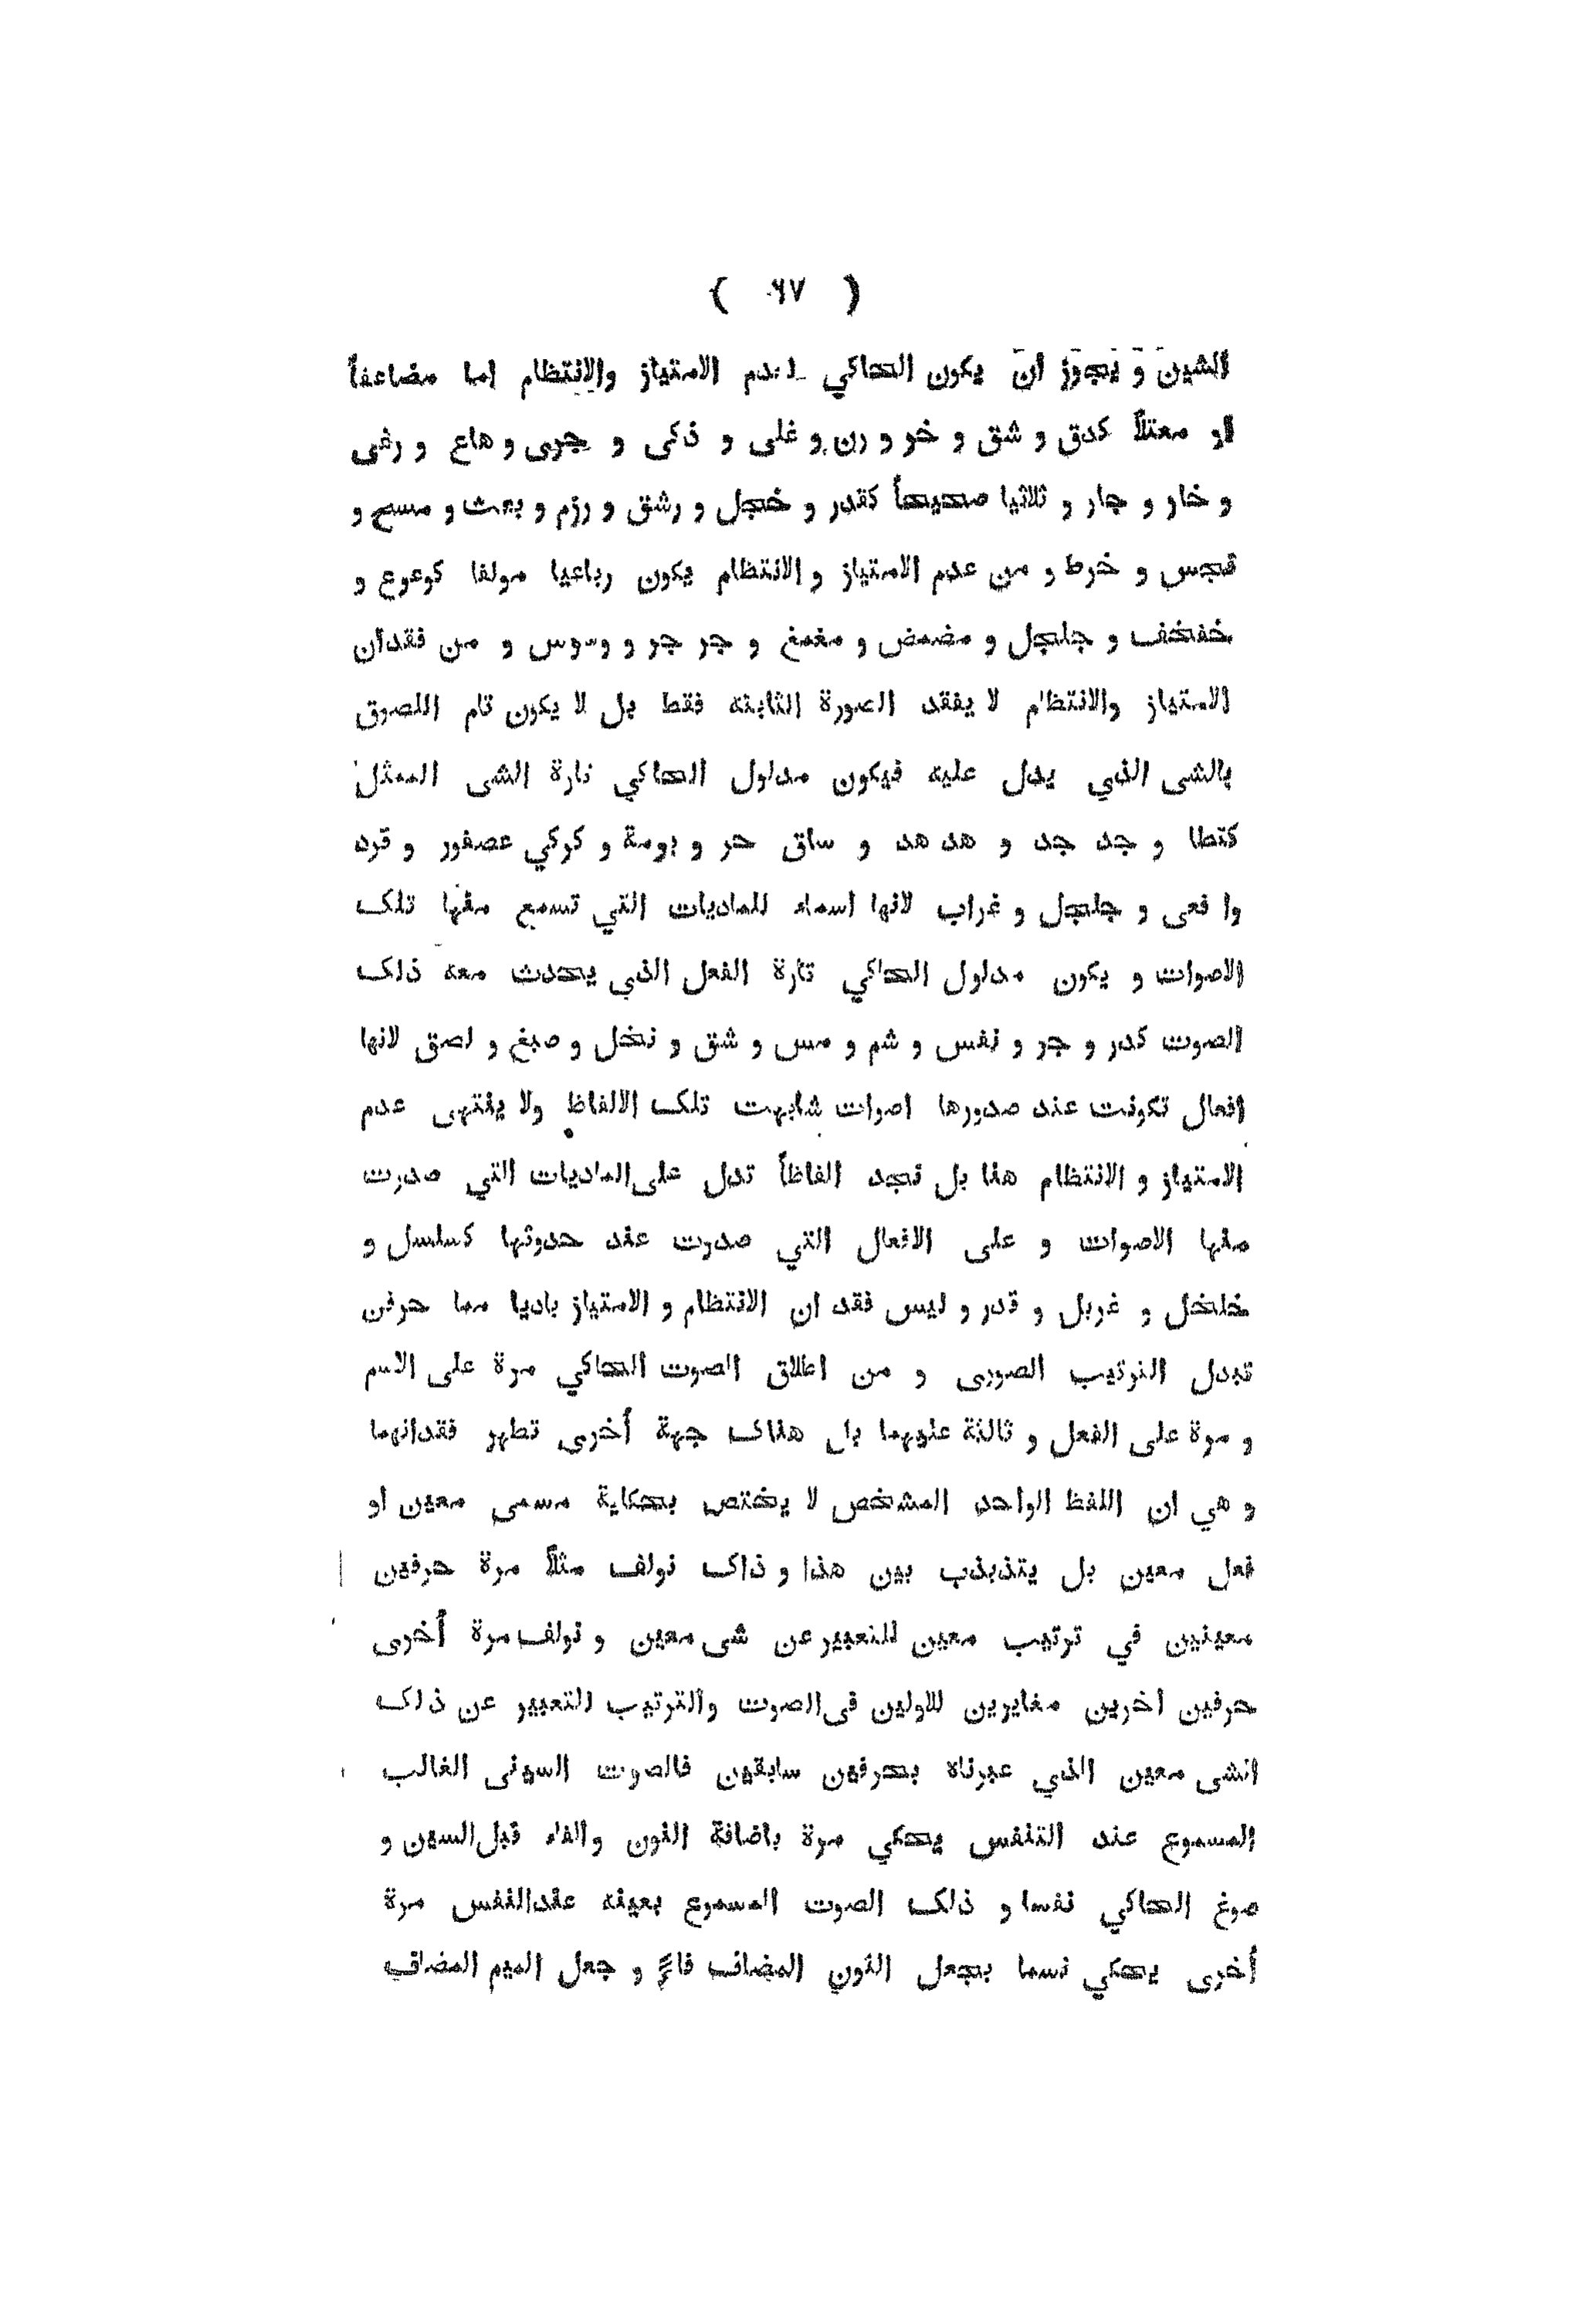 ( ٦٧ )
الشين و يجوز ان يكون الحاكي لعدم الامتياز والانتظام اما مضاعفاً
او معتلاً كدق و شق و خر و رن و غلى و ذكى و جرى و هاع و رفى
و خار و جار و ثلاثيا صحيحاً كقدر و خجل و رشق و رزم و بعث و مسح و
فجس و خرط و من عدم الامتياز و الانتظام يكون رباعيا مولفا كوعوع و
خفخف و جلجل و مضمض و مغمغ و جر جر و وسوس و من فقدان
الامتياز والانتظام لا يفقد الصورة الثابتة فقط بل لا يكون تام اللصوق
بالشى الذي يدل عليه فيكون مدلول الحاكي تارة الشى الممثل
كقطا و جد جد و هد هد و ساق حر و بومة و كركي عصفور و قرد
وا فعى و جلجل و غراب لانها اسماء للماديات التي تسمع منها تلك
الاصوات و يكون مدلول الحاكي تارة الفعل الذي يحدث معه ذلك
الصوت كدر و جر و نفس و شم و مس و شق و نخل و صبغ و لصق لانها
افعال تكونت عند صدورها اصوات شابهت تلك الالفاظ ولا ينتهى عدم
الامتياز و الانتظام هذا بل نجد الفاظاً تدل على الماديات التي صدرت
منها الاصوات و على الافعال التي صدرت عند حدوثها كسلسل و
خلخل و غربل و قدر و ليس فقد ان الانتظام و الامتياز باديا مما حرفن
تبدل الترتيب الصورى و من اطلاق الصوت الحاكي مرة على الاسم
و مرة على الفعل و ثالثة عليهما بل هناك جهة أخرى تظهر فقدانهما
و هي ان اللفظ الواحد المشخص لا يختص بحكاية مسمى معين او
فعل معين بل يتذبذب بين هذا و ذاك نولف مثلاً مرة حرفين
معينين في ترتيب معين للتعبير عن شى معين و نولف مرة أخرى
حرفين اخرين مغايرين للاولين فى الصوت والترتيب للتعبير عن ذلك
الشى معين الذي عبرناه بحرفين سابقين فالصوت السينى الغالب
المسموع عند التنفس يحكي مرة باضافة النون والفاء قبل السين و
صوغ الحاكي نفسا و ذلك الصوت المسموع بعينه عند النفس مرة
أخرى يحكي نسما بجعل النون المضاف فاءً و جعل الميم المضاف